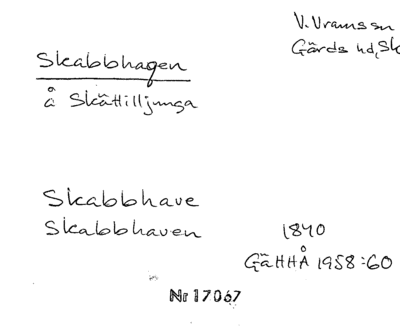 V. Vramssn
Gärds hd, Sk
Skabbhagen
å Skättilljunga
Skabbhave
Skabbhaven 1840
GäHHÅ 1958:60
Nr 17067